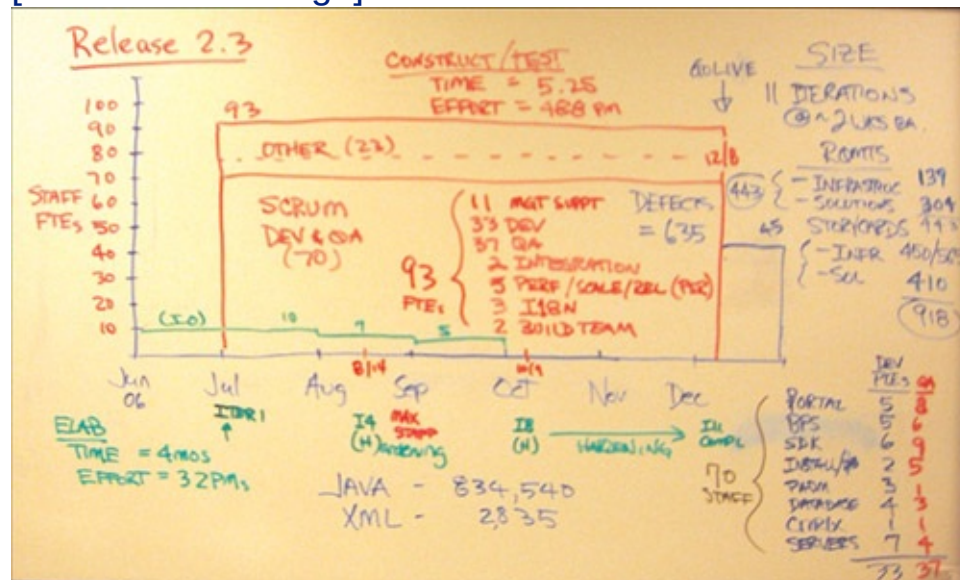 Release 2.3
CONSTRUCT/TEST
TIME = 5.25
EFFORT = 488 PM
GOLIVE
SIZE
11 ITERATIONS
@ ~ 2 WKS EA.
RQMTS
- INFRASTRUC 139
- SOLUTIONS 304
443
STORYCARDS 443
- INFR 450/
- SOL 410
918
STAFF
FTEs
100
90
80
70
60
50
40
30
20
10
93
OTHER (23)
12/8
SCRUM
DEV & QA
(70)
93
FTEs
11 MGT SUPPT
33 DEV
37 QA
2 INTEGRATION
5 PERF/SCALE/REL (PSR)
3 I18N
2 BUILD TEAM
DEFECTS
= 635
45
10
7
5
8/14
10/9
Jun
06
Jul
Aug
Sep
Oct
Nov
Dec
ITER 1
I4
(H)ardening
MAX
STAFF
I8
(H)
HARDENING
I11
COMPL
ELAB
TIME = 4 mos
EFFORT = 32 PMs
JAVA - 834,540
XML - 2,835
70
STAFF
DEV
FTEs QA
PORTAL 5 8
BPS 5 6
SDK 6 9
2 5
PADM 3 1
DATABASE 4 3
CITRIX 1 1
SERVERS 7 4
33 37